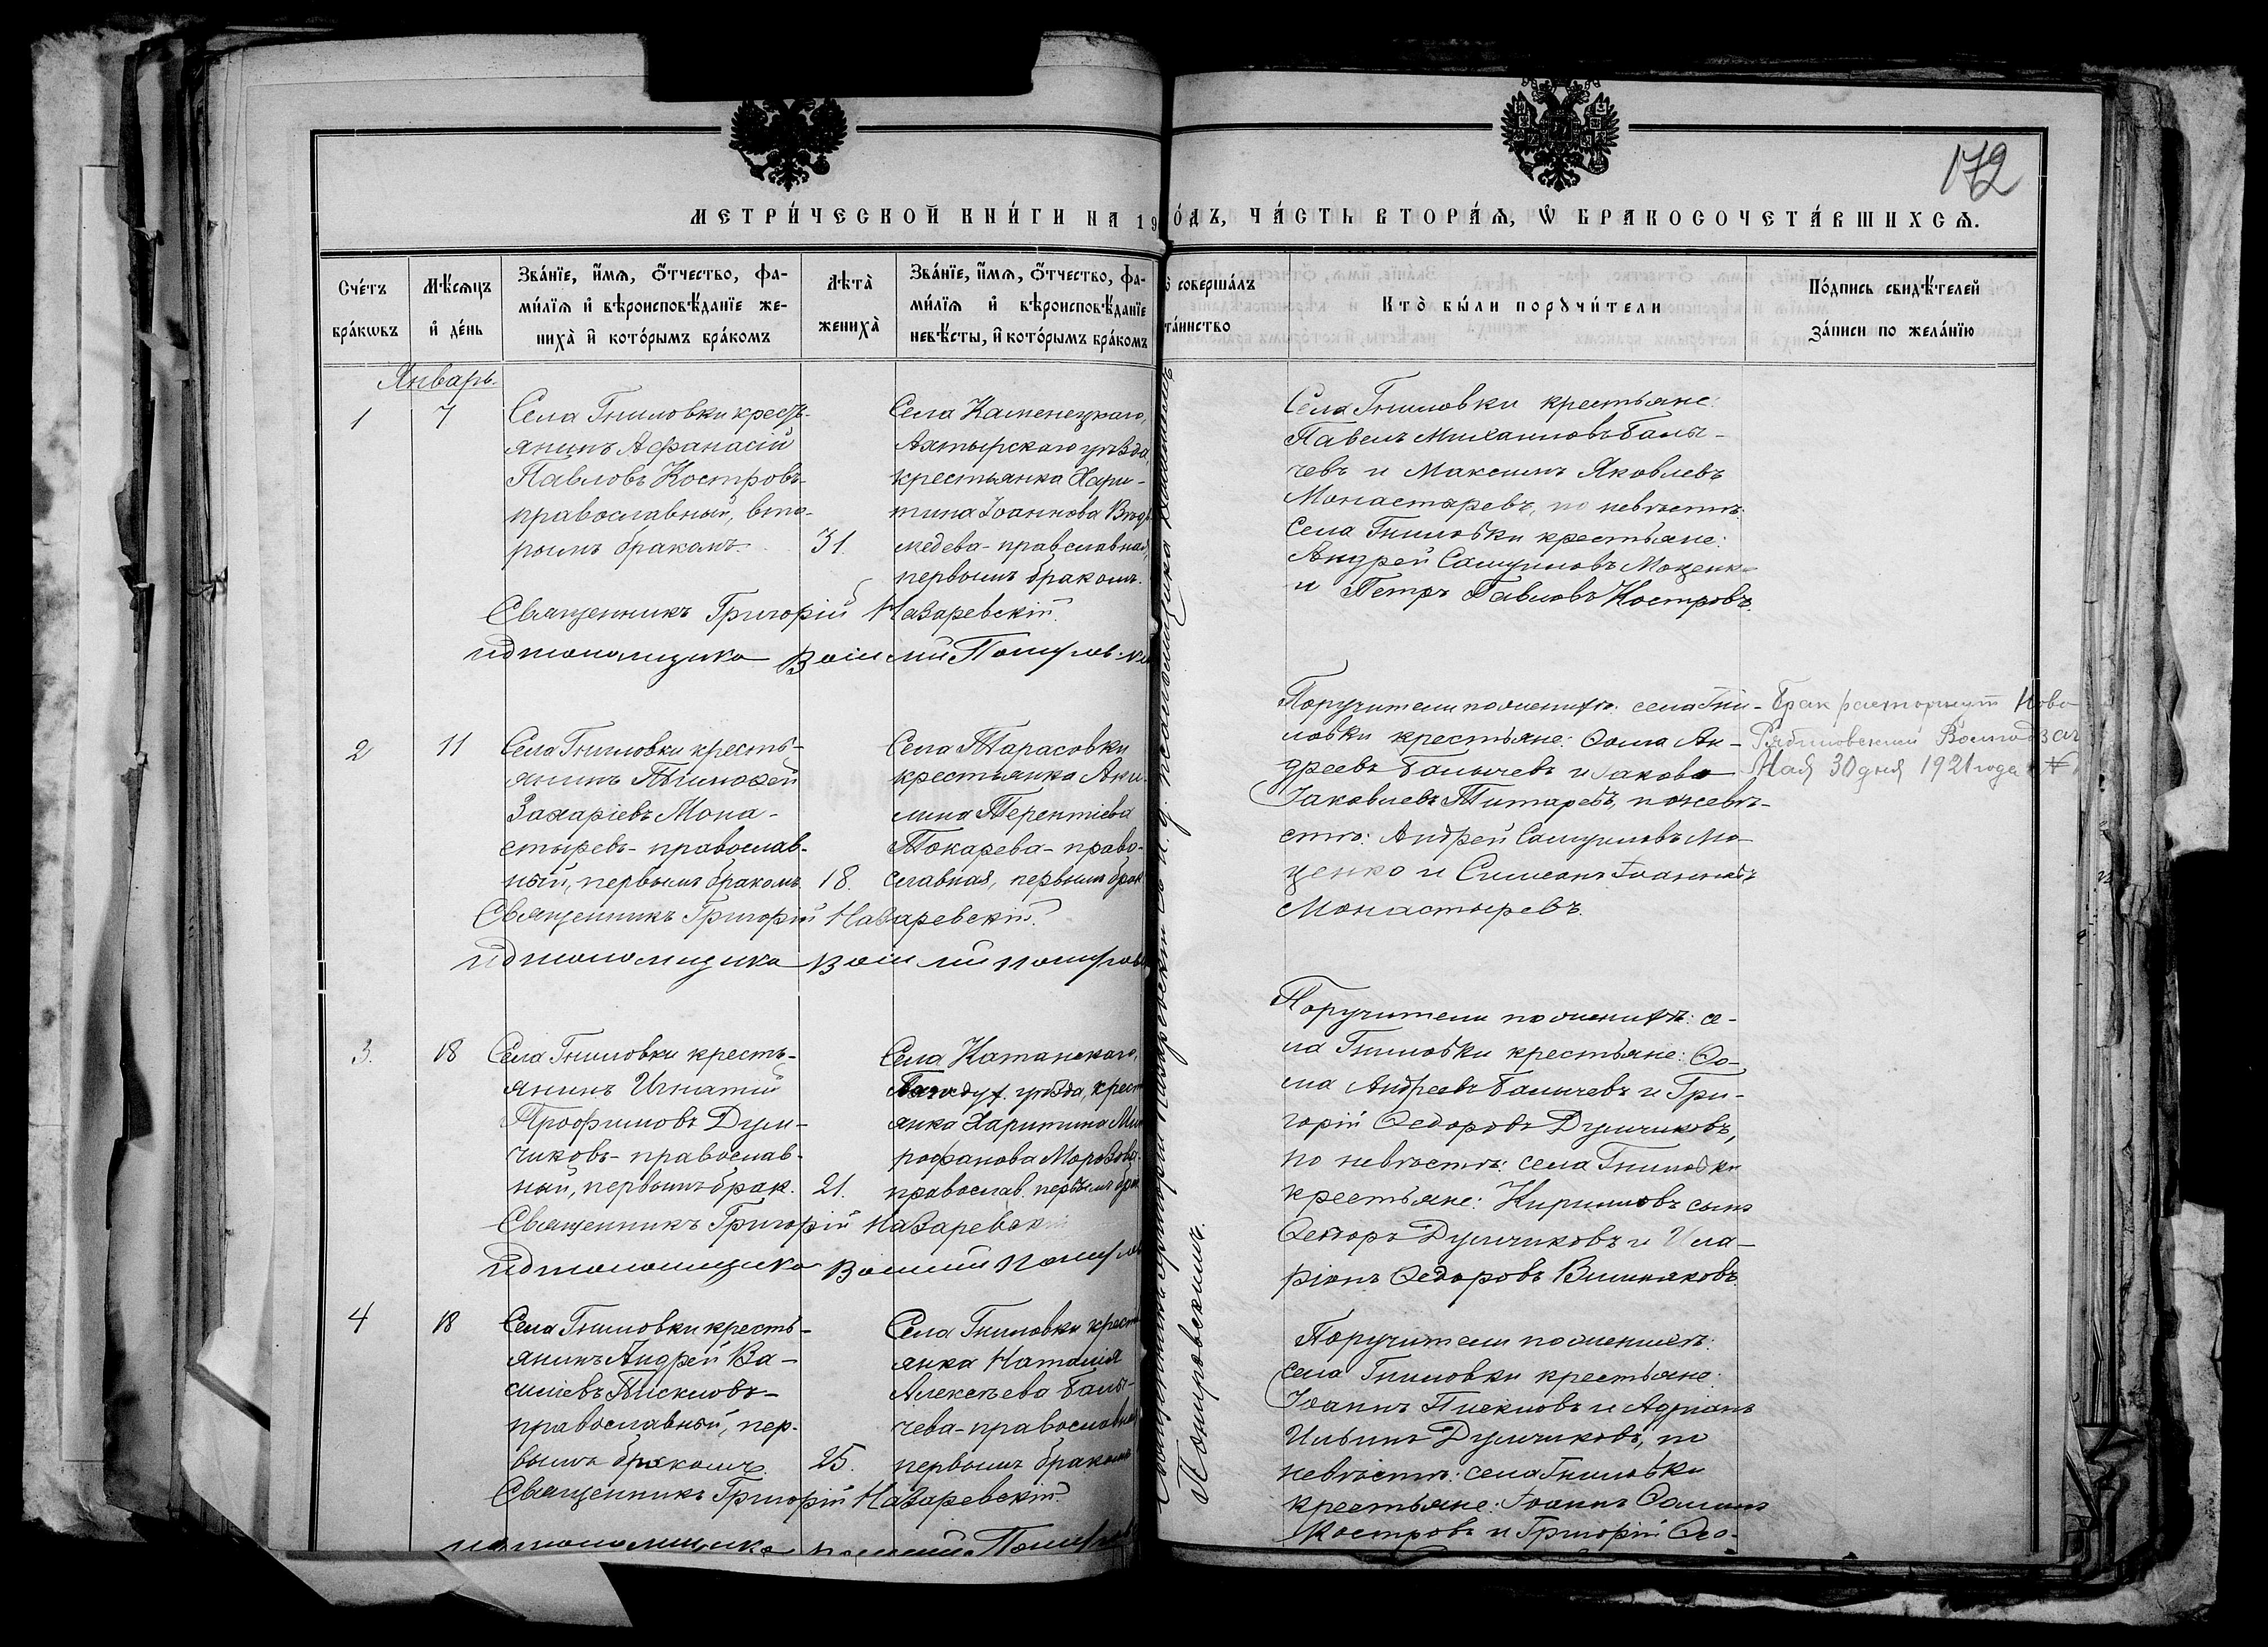 172
МЕТРИ́ЧЕСКОЙ КНИ́ГИ НА 19
О́ДЪ, ЧА́СТЬ ВТОРА́Ѧ, Ѽ БРАКОСОЧЕТА́ВШИХСѦ.
Сче́тъ бра́кωвъ
Мѣ́сѧцъ и҆ де́нь
Зва́нїе, и҆́мѧ, ѻ҆́тчество, фа-
ми́лїѧ и҆ вѣроисповѣ́данїе же-
ниха̀ и҆ кото́рымъ бра́комъ
Лѣта̀ жениха̀
Зва́нїе, и҆́мѧ, ѻ҆́тчество, фа-
ми́лїѧ и҆ вѣроисповѣ́данїе
невѣ́сты, и҆ кото́рымъ бра́комъ
совершáлъ
та́инство
Кто̀ бы́ли порꙋчи́тели
По́дпись свидѣ́телей
за́писи по жела́нїю
Январь.
1
7
Села Гниловки кресть-
янинъ Афанасій
Павловъ Костровъ-
православный, вто-
рымъ бракомъ.
31.
Села Каменецкаго,
Ахтырскаго уѣзда,
крестьянка Хари-
тина Іоаннова
медева - православная,
первымъ бракомъ.
Священникъ Григорій Назаревскій.
Села Гниловки крестьяне:
Павелъ Михаиловъ Балы-
чевъ и Максимъ Яковлевъ
Монастыревъ, по невѣстѣ:
Села Гниловки крестьяне:
Андрей Самуиловъ Моценко
и Петръ Павловъ Костровъ.
2
11
Села Гниловки кресть-
янинъ Тимофей
Захаріевъ Мона-
стыревъ - православ-
ный, первымъ бракомъ
18.
Села Тарасовки
крестьянка Аки-
лина Терентіева
Токарева - право-
славная, первымъ брак
Священникъ Григорій Назаревскій.
Поручители по женихѣ: села Гни-
ловки крестьяне: Ѳома Ан-
дреевъ Балычевъ и Іаковъ
Іаковлевъ Титаревъ, по невѣ-
стѣ: Андрей Самуиловъ Мо-
ценко и Симеонъ Іоанновъ
Монастыревъ.
Брак расторгнут Ново
Рябиновский
Мая 30 дня 1921 года
3.
18
Села Гниловки кресть-
янинъ Игнатій
Трофимовъ Думи-
чиковъ - православ-
ный, первымъ брак.
21.
Села Катанскаго,
Богодух. уѣзда, крест
янка Харитина Мит
рофанова Морозова-
православ. первымъ брак
Священникъ Григорій Назаревскій
Поручители по женихѣ: се-
ла Гниловки крестьяне: Ѳо-
ма Андреевъ Балычевъ и Гри-
горій Ѳедоровъ Думчиковъ,
по невѣстѣ: села Гниловки
крестьяне: Кириловъ сынъ
Ѳедоръ Думчиковъ и Ила-
ріонъ Ѳедоровъ Вишняковъ.
4
18
Села Гниловки кресть-
янинъ Андрей Ва-
сильевъ Пискловъ-
православный, пер-
вымъ бракомъ
25.
Села Гниловки кресть
янка Наталія
Алексѣева Балы-
чева - православная
первымъ бракомъ
Священникъ Григорій Назаревскій.
Поручители по женихѣ:
села Гниловки крестьяне:
Іоаннъ Пискловъ и Адріанъ
Ильинъ Думчиковъ, по
невѣстѣ: села Гниловки
крестьяне: Іоаннъ Ѳоминъ
Костровъ и Григорій Ѳео-